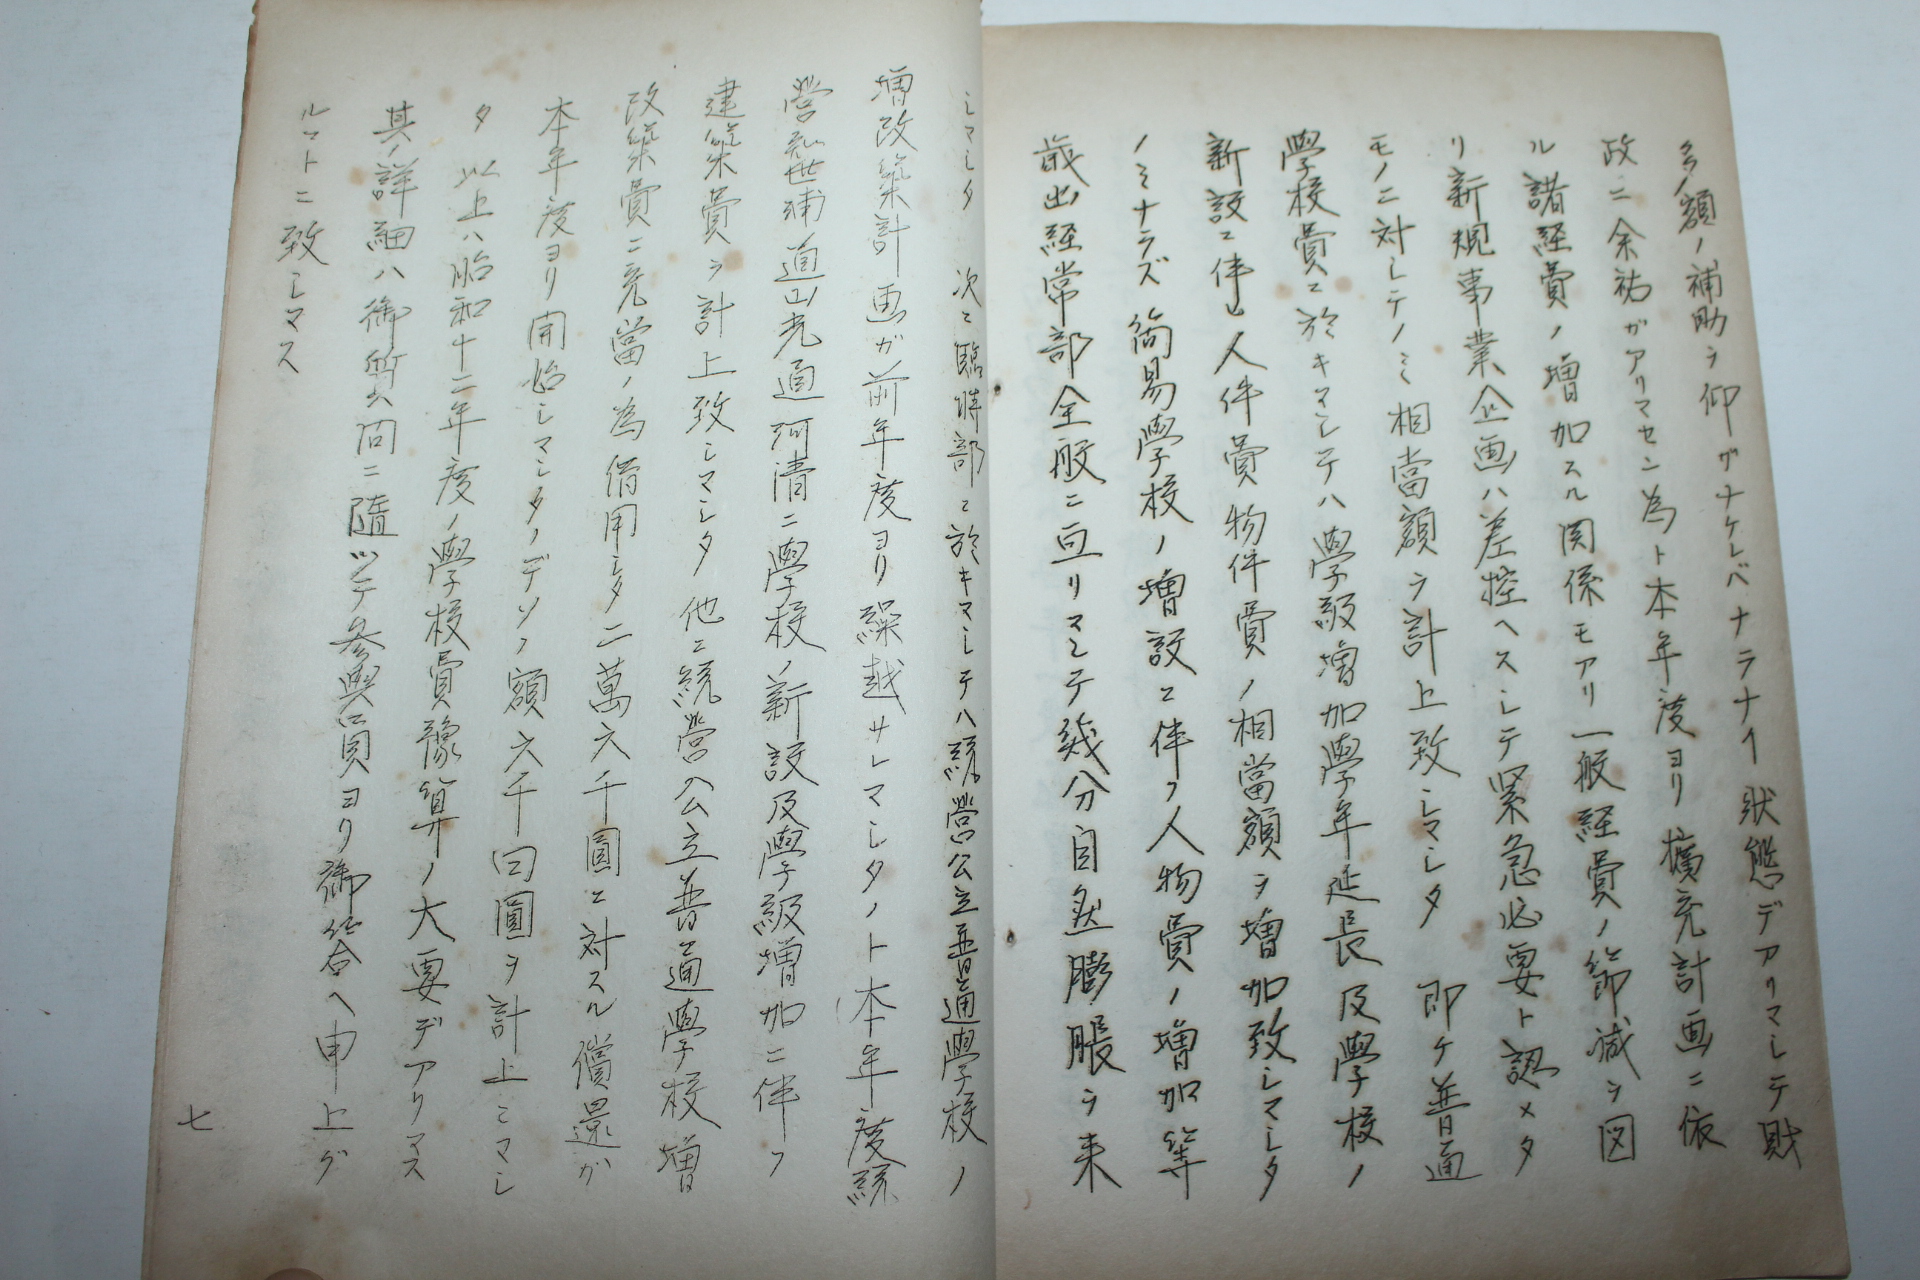 多額ノ補助ヲ仰ガナケレバナラナイ状態デアリマシテ財
政ニ余祐ガアリマセン為ト本年度ヨリ擴充計画ニ依
ル諸経費ノ増加スル関係モアリ一般経費ノ節減ヲ図
リ新規事業企画ハ差控ヘスシテ緊急必要ト認メタ
モノニ対シテノミ相當額ヲ計上致シマシタ 即ケ普通
學校費ニ於キマシテハ學級増加學年延長及學校ノ
新設ニ伴ヒ人件費物件費ノ相當額ヲ増加致シマシタ
ノミナラズ簡易學校ノ増設ニ伴フ人物費ノ増加等
歳出経常部全般ニ亘リマシテ幾分自然膨脹ヲ来
シマシタ 次ニ臨時部ニ於キマシテハ統營公立普通學校ノ
増改築計画ガ前年度ヨリ繰越サレマシタノト本年度統
營 道山光道河清ニ學校ノ新設及學級増加ニ伴フ
建築費ヲ計上致シマシタ他ニ統營公立普通學校増
改築費ニ充當ノ為借用シタ二萬六千圓ニ対スル償還ガ
本年度ヨリ開始シマシタノデソノ額六千 圓ヲ計上シマシ
タ 以上ハ昭和十二年度ノ學校費豫算ノ大要デアリマス
其ノ詳細ハ御質問ニ隨ツテ参與員ヨリ御答ヘ申上ゲ
ルコトニ致シマス
七